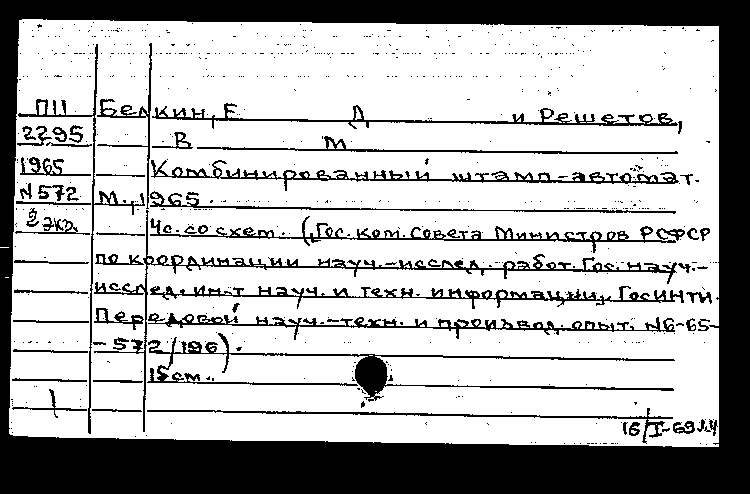 П11 Белкин, Е Д и Решетов,
2295 В М
1965 Комбинированный штамп-автомат.
N572 М., 1965.
2 экз. 4с. со схем. (Гос. ком. Совета Министров РСФСР
по координации науч.-исслед. работ. Гос. науч.-
исслед. ин-т науч. и техн. информации, ГосИНТИ.
Передовой науч.-техн. и производ. опыт. N6-65-
-572/196).
15 см.
16/I-69